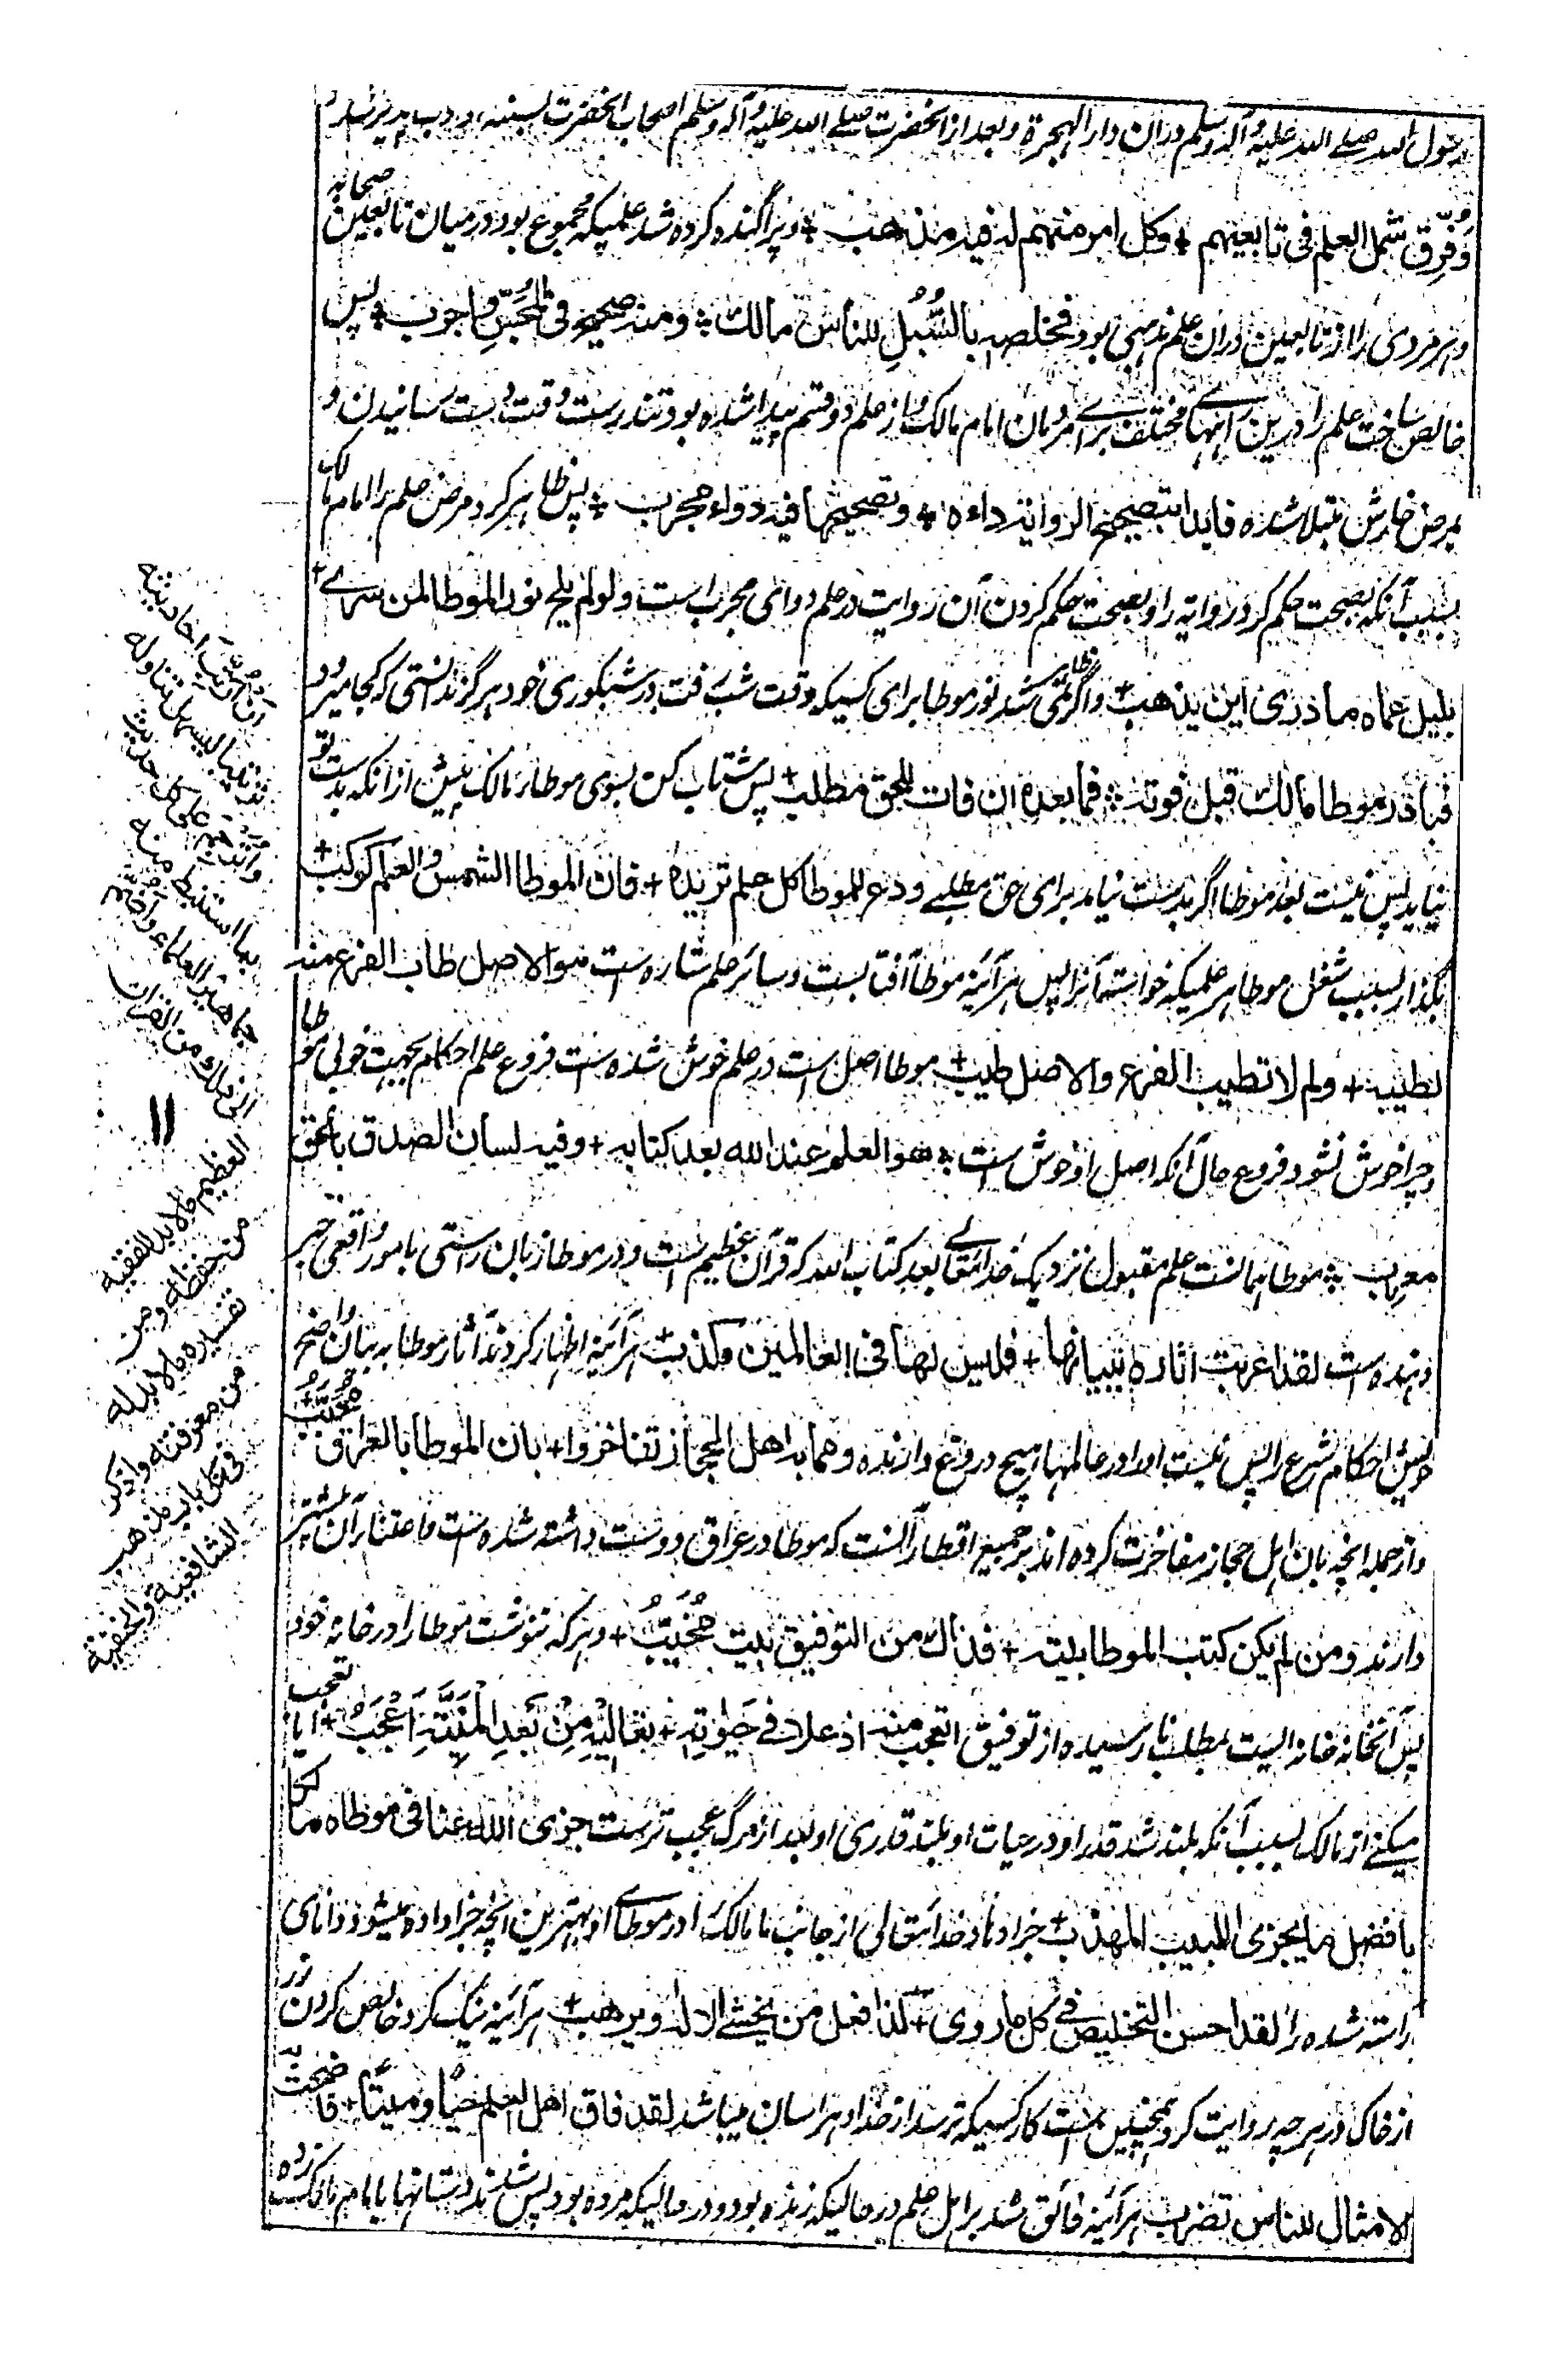 رسول الله صلے الله علیه وآله وسلم دران دار الهجرة وبعد از آنحضرت صلے الله علیه وآله وسلم اصحاب آنحضرت بسنته او ادب پذیر شدند
وَفُرِّق شمل العلم فی تابعیهم + وکل امرء منهم له فیه مذهب + وپراگنده کرده شد علمیکه مجموع بود درمیان تابعین صحابه
وهر مردی را از تابعین دران علم مذهبی بود فخلصه بالسُّبُلِ للناس مالك + ومنه صحیح فی المجس واجرب + پس
خالص ساخت علم را درین راههاے مختلف براے مردمان امام مالک واز علم دو قسم پیدا شده بود تندرست وقت دست رسانیدن و
بمرض خارش مبتلا شده فابدا بتصحیح الروایة داءه + وتصحیحها فیه دواء مجرب + پس ظاهر کرد مرض علم را امام مالک
بسبب آنکه بصحت حکم کرد روایة را وبصحت حکم کردن آن روایت در علم دوای مجرب است ولو لم یلح نور الموطا لمن سرے +
بلیل عماه ما دری این یذهب + واگر ظاهر نمی شد نور موطا برای کسیکه وقت شب رفت در شبکوری خود هرگز ندانستی که کجا میرود
فبادر موطا مالك قبل فوته + فما بعده ان فات للحق مطلب + پس شتاب کن بسوی موطاء مالک پیش ازانکه بدست تو
نیاید پس نیست بعد موطا اگر بدست نیامد برای حق مطلبے ودع للموطا کل علم تریده + فان الموطا الشمس والعلم کوکب +
بگذار بسبب شغل موطا هر علمیکه خواسته آنرا پس هر آئینه موطا آفتابست وسائر علم ستاره است هو الاصل طاب الفرع منه
لطیبه + ولم لا تطیب الفرع والاصل طیب + موطا اصل است در علم خوش شده است فروع علم احکام بجهت خوبی موطا
وچرا خوش نشود فروع حال آنکه اصل او خوش است + هو العلم عند الله بعد کتابه + وفیه لسان الصدق بالحق
معرب + موطا همانست علم مقبول نزدیک خدایتعالے بعد کتاب الله که قرآن عظیم است ودر موطا زبان راستی بامور واقعی خبر
دهنده است لقد اعربت اثاره ببیانها + فلیس لها فی العالمین مکذب + هر آئینه اظهار کردند آثار موطا به بیان واضح
خویش احکام شرع را پس نیست اورا در عالمها هیچ دروغ دارنده ومما به اهل الحجاز تفاخروا + بان الموطا بالعراق مُحَبَّبُ
واز جمله انچه بان اهل حجاز مفاخرت کرده اند بر جمیع اقطار آنست که موطا در عراق دوست داشته شده است واعتناء آن بیشتر
دارند ومن لم یکن کتب الموطا ببیته + فذاك من التوفیق بیت مُخَیَّبُ + وهر که ننوشت موطا را در خانه خود
پس آنخانه خانه ایست بمطلب نارسیده از توفیق اتعجب منه اذ علا فے حیٰوته + تعالیه من بعد المنیة اعجب + آیا تعجب
میکنے از مالک بسبب آنکه بلند شد قدر او در حیات او بلند قدری او بعد از مرگ عجیب ترست جزی الله عنا فی موطاه مالکا
بافضل ما یجزی اللبیب المهذب + جزا دهاد خدایتعالی از جانب ما مالک را در موطاے او بهترین انچه جزا داده میشود دانای
راسته شده را لقد احسن التخلیص فے کل ما روی + کذا فعل من یخشے الاله ویرهب + هر آئینه نیک کرد خالص کردن زر
از خاک در هر چه روایت کرد همچنین است کار کسیکه ترسد از خدا وهراسان میباشد لقد فاق اهل العلم حیا ومیتا + فاضحت
الامثال للناس تضرب هر آئینه فائق شد بر اهل علم در حالیکه زنده بود ودر حالیکه مرده بود پس شدند داستانها بامام مالک زده
ان ارتب احادیثه
ترتیبا یسهل تناوله
واترجم علی کل حدیث
بما استنبط منه
جماهیر العلماء واضم
الی ذلك من القران
۱۱
العظیم ما لا بد للفقیه
من حفظه ومن
تفسیره ما لا بد له
من معرفته واذکر
فی کل باب مذهب
الشافعیة والحنفیة